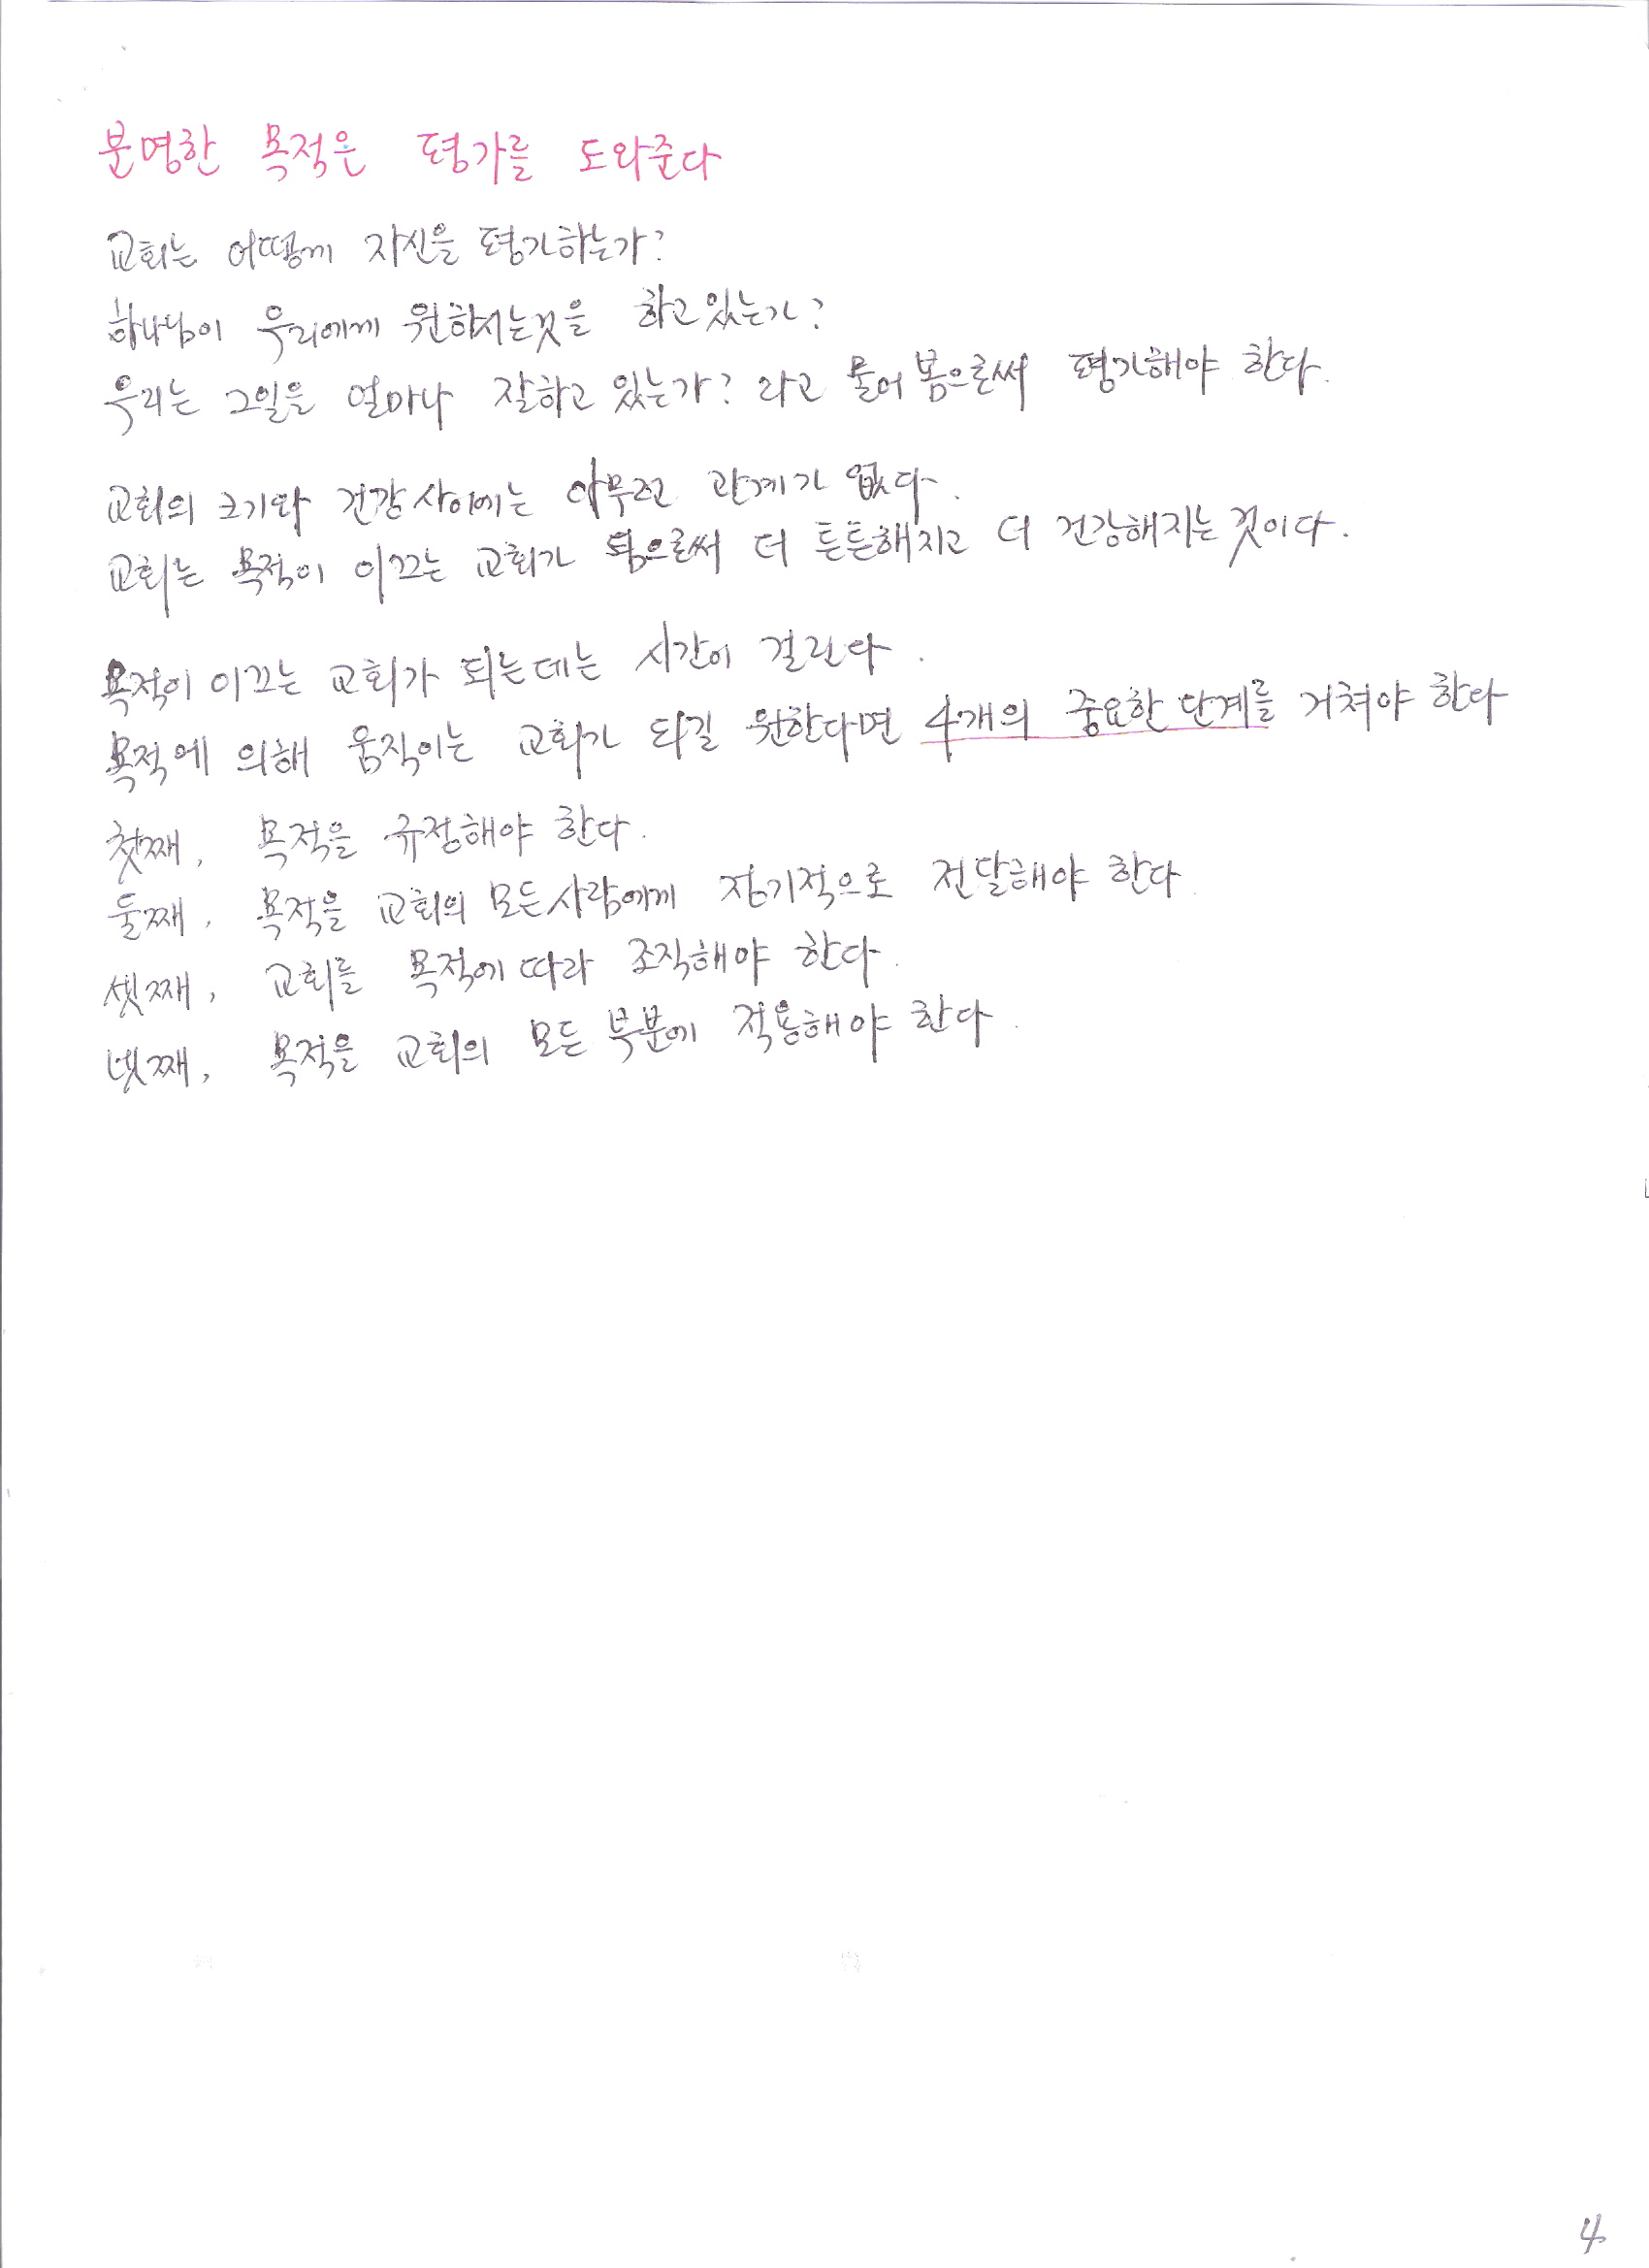 분명한 목적은 평가를 도와준다
교회는 어떻게 자신을 평가하는가?
하나님이 우리에게 원하시는것을 하고있는가?
우리는 그일을 얼마나 잘하고 있는가? 라고 물어 봄으로써 평가해야 한다.
교회의 크기와 건강 사이에는 아무런 관계가 없다.
교회는 목적이 이끄는 교회가 됨으로써 더 튼튼해지고 더 건강해지는 것이다.
목적이 이끄는 교회가 되는데는 시간이 걸린다.
목적에 의해 움직이는 교회가 되길 원한다면 4개의 중요한 단계를 거쳐야 한다
첫째, 목적을 규정해야 한다.
둘째, 목적을 교회의 모든사람에게 정기적으로 전달해야 한다
셋째, 교회를 목적에 따라 조직해야 한다.
넷째, 목적을 교회의 모든 부분에 적용해야 한다.
4